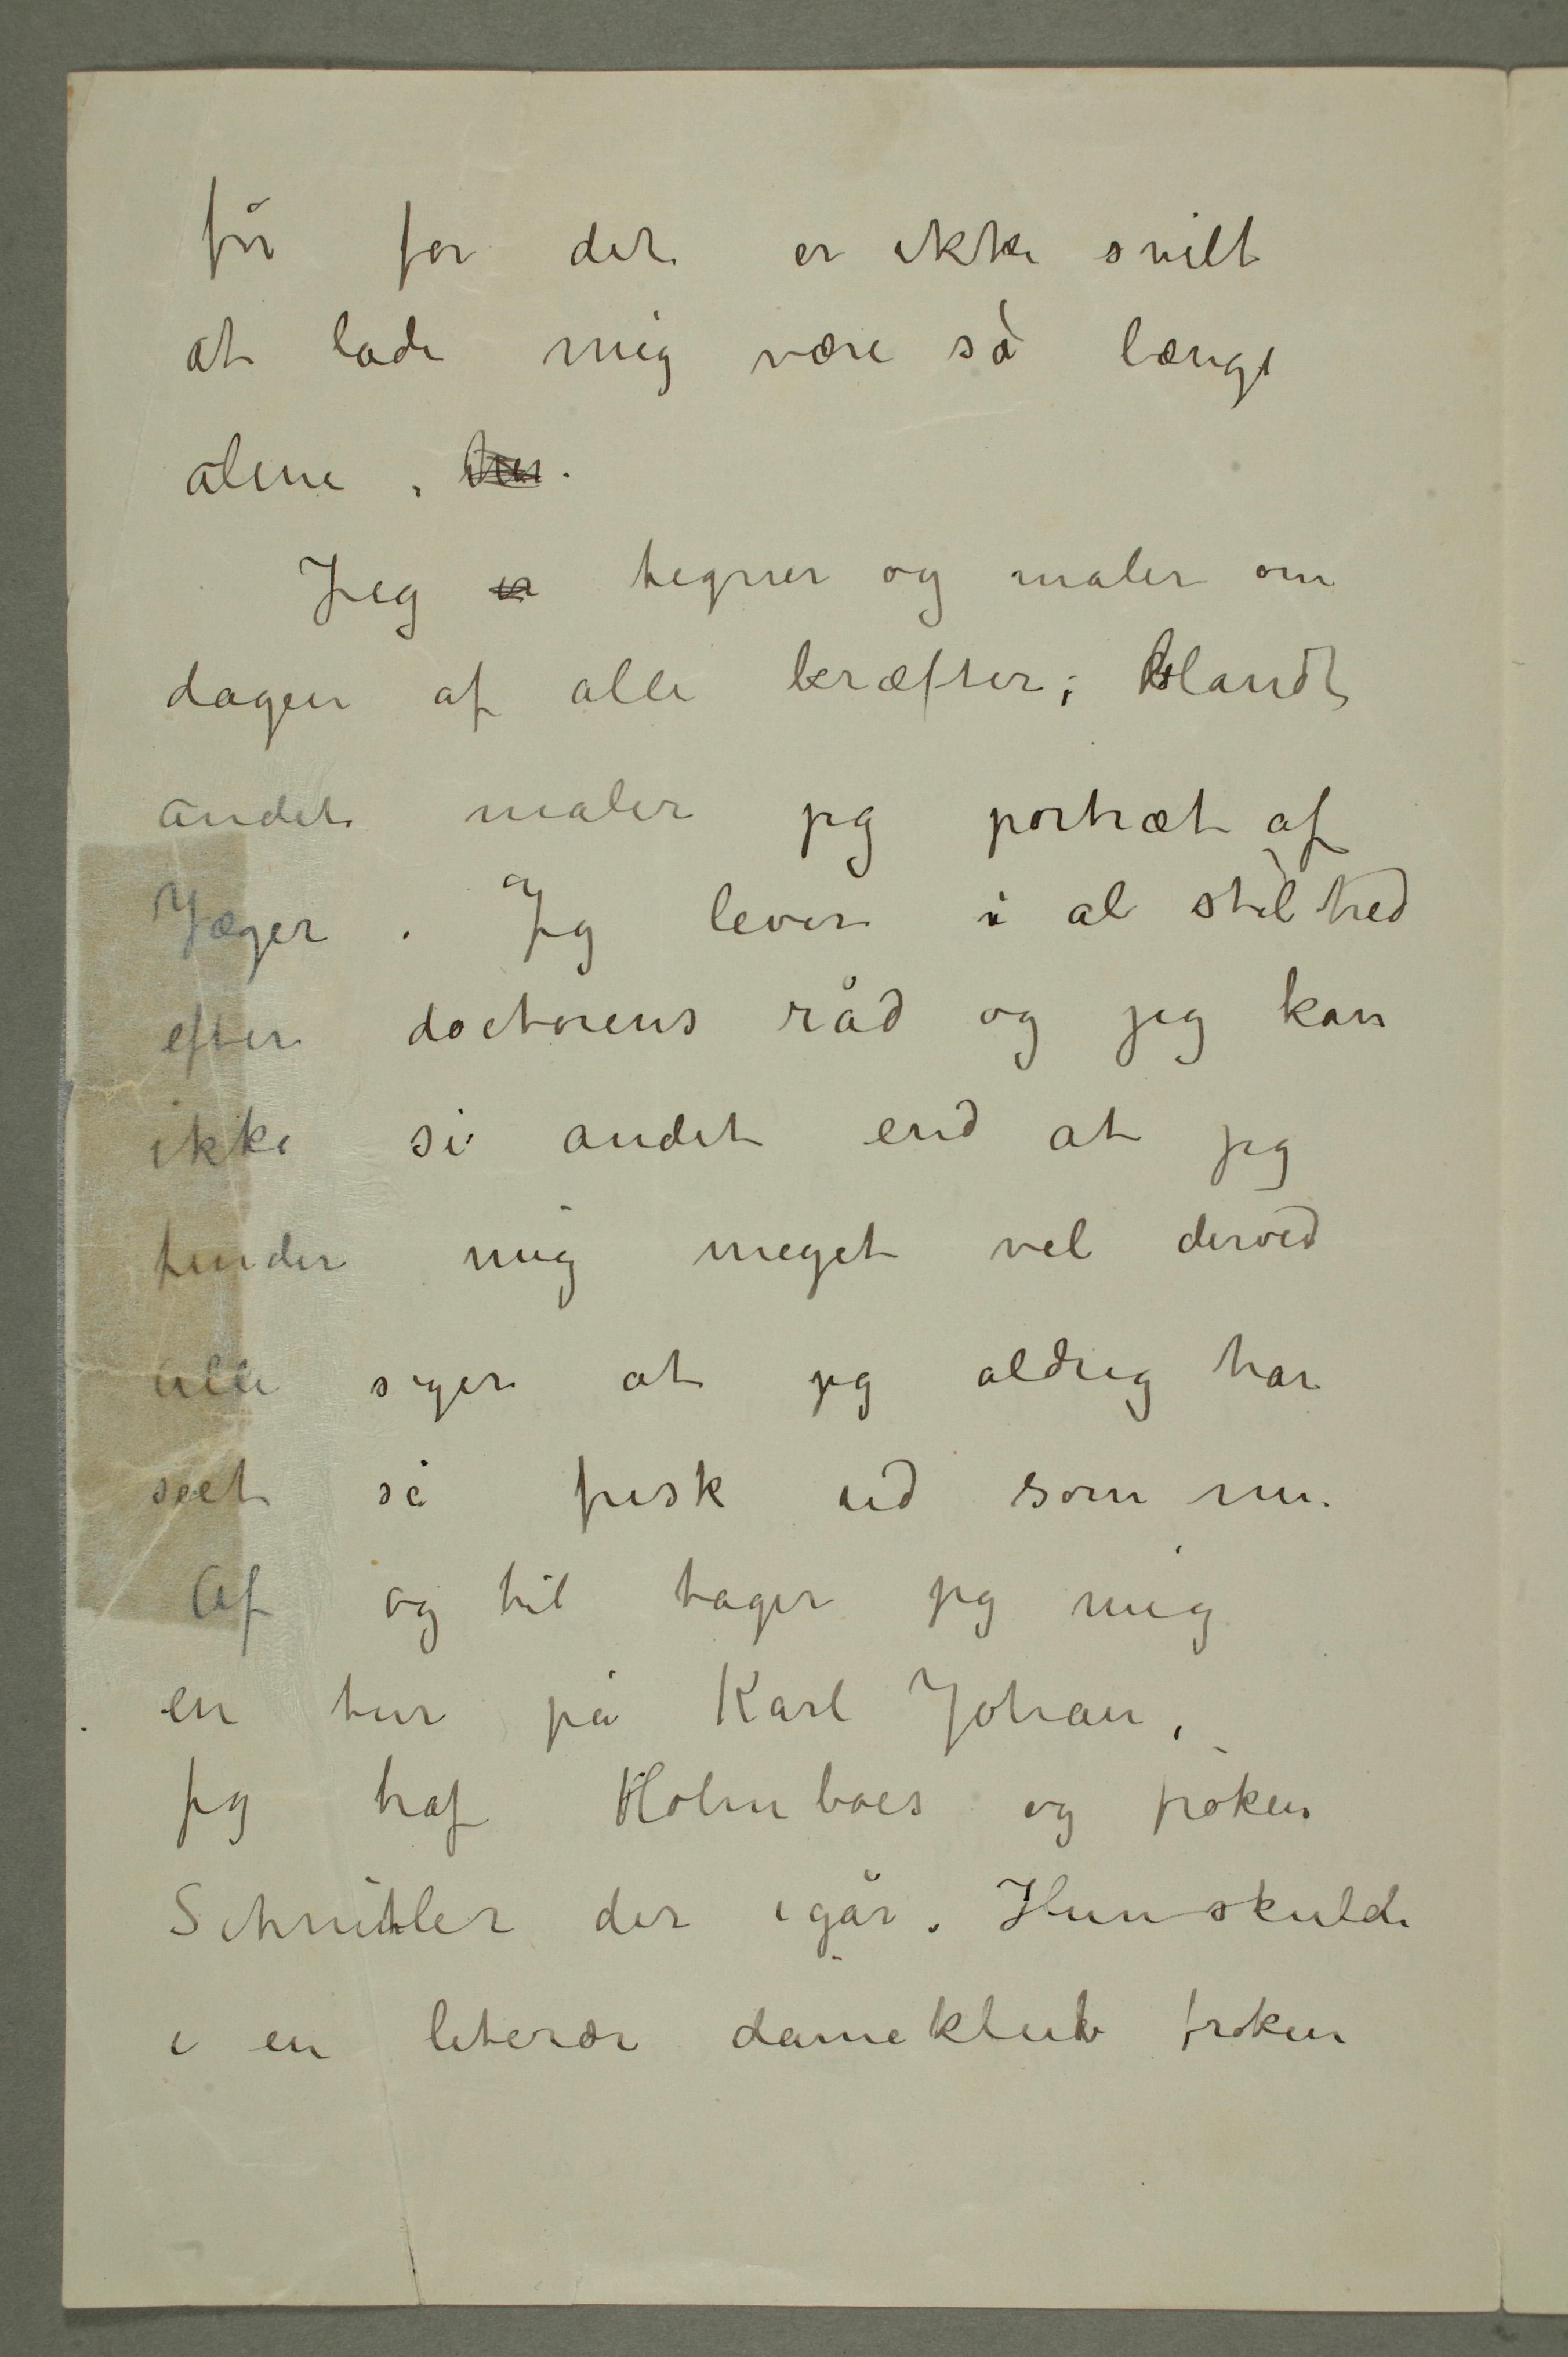 får for det er ikke snilt
at lade mig være så længe
alene. her.
Jeg er tegner og maler om
dagen af alle kræfter; blandt
andet maler jeg portræt af
Jæger. Jeg lever i al stilhed
efter doctorens råd og jeg kan
ikke si andet end at jeg
finder mig meget vel derved
alle siger at jeg aldrig har
seet så frisk ud som nu.
Af og til tager jeg mig
en tur på Karl Johan,
Jeg traf Holmboes og frøken
Schnitler der igår. Hun skulde
i en literær dameklub frøken